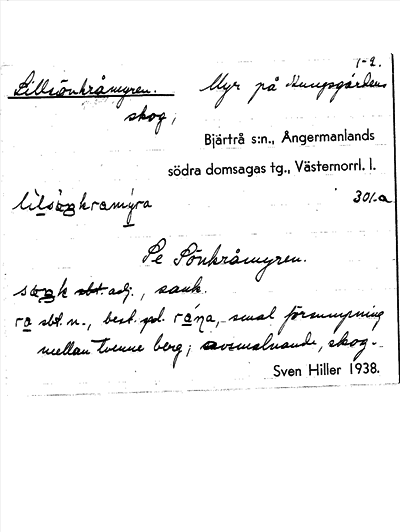 1-2.
Lillsönkråmyren. Myr på Kungsgårdens
skog;
Bjärtrå s:n., Ångermanlands
södra domsagas tg., Västernorrl. l.
30/.a
Se Sönkråmyren.
sbt. adj., sank.
sbt. n., best. pl. smal försumpning
mellan tvenne berg; avsmalnande, skog.
Sven Hiller 1938.